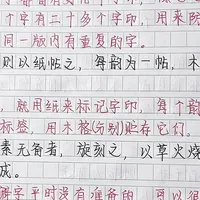 个字有二十多个字印，用来防
同一版内有重复的字。
则以纸帖之，每韵为一帖，木
，就用纸来标记字印，每个韵
标签，用木格(分别)贮存它们。
素无备者，旋刻之，以草火烧
成。
僻字平时没有准备的，可以很